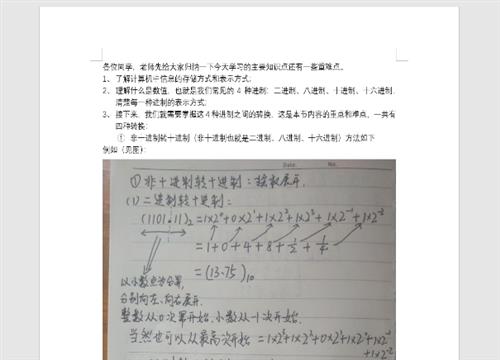 各位同学，老师先给大家归纳一下今天学习的主要知识点还有一些重难点。
1、了解计算机中信息的存储方式和表示方式；
2、理解什么是数值，也就是我们常见的4种进制：二进制、八进制、十进制、十六进制，
清楚每一种进制的表示方式；
3、接下来，我们就需要掌握这4种进制之间的转换，这是本节内容的重点和难点，一共有
四种转换：
① 非十进制转十进制（非十进制也就是二进制、八进制、十六进制）方法如下
例如（见图）：
Date. No.
①非十进制转十进制：按权展开.
(1) 二进制转十进制：
(1101.11)₂ = 1×2⁰+0×2¹+1×2²+1×2³+1×2⁻¹+1×2⁻²
= 1+0+4+8+1/2+1/4
= (13.75)₁₀
以小数点为分界,
分别向左、向右展开.
整数从0次幂开始，小数从-1次开始.
当然也可以从最高次开始 = 1×2³+1×2²+0×2¹+1×2⁰+1×2⁻¹
+1×2⁻²